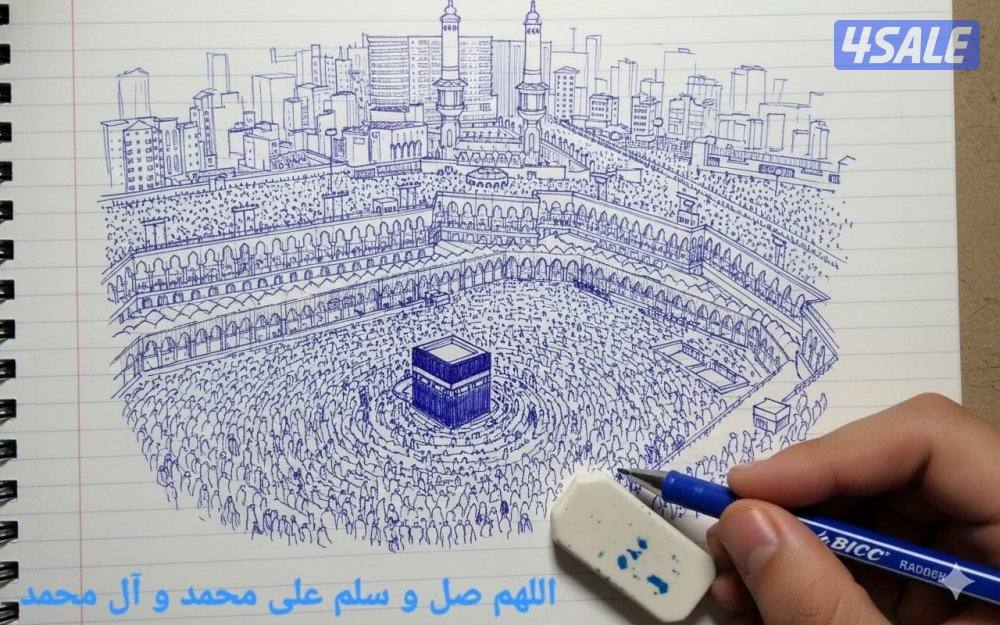 4SALE
BICC
اللهم صل و سلم على محمد و آل محمد